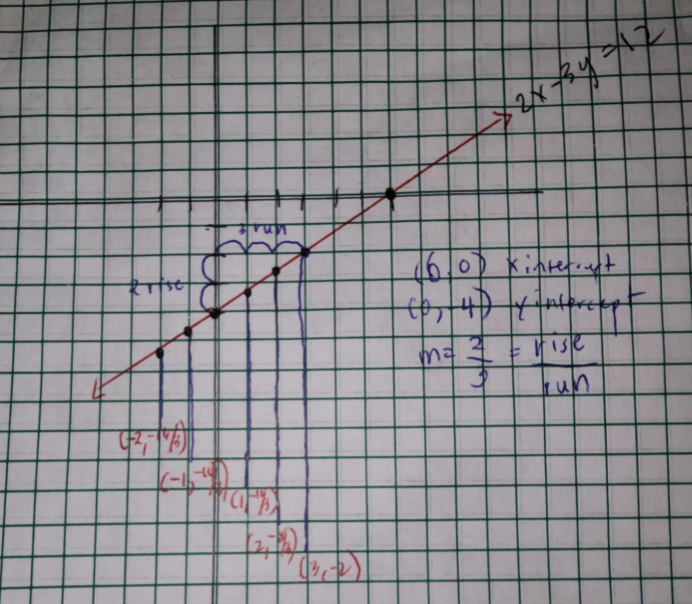 2x-3y=12
3 run
2 rise
(6,0) x intercept
(0,-4) y intercept
m=2/3=rise/run
(-2,
(-1,
(1,
(2,
(3,-2)